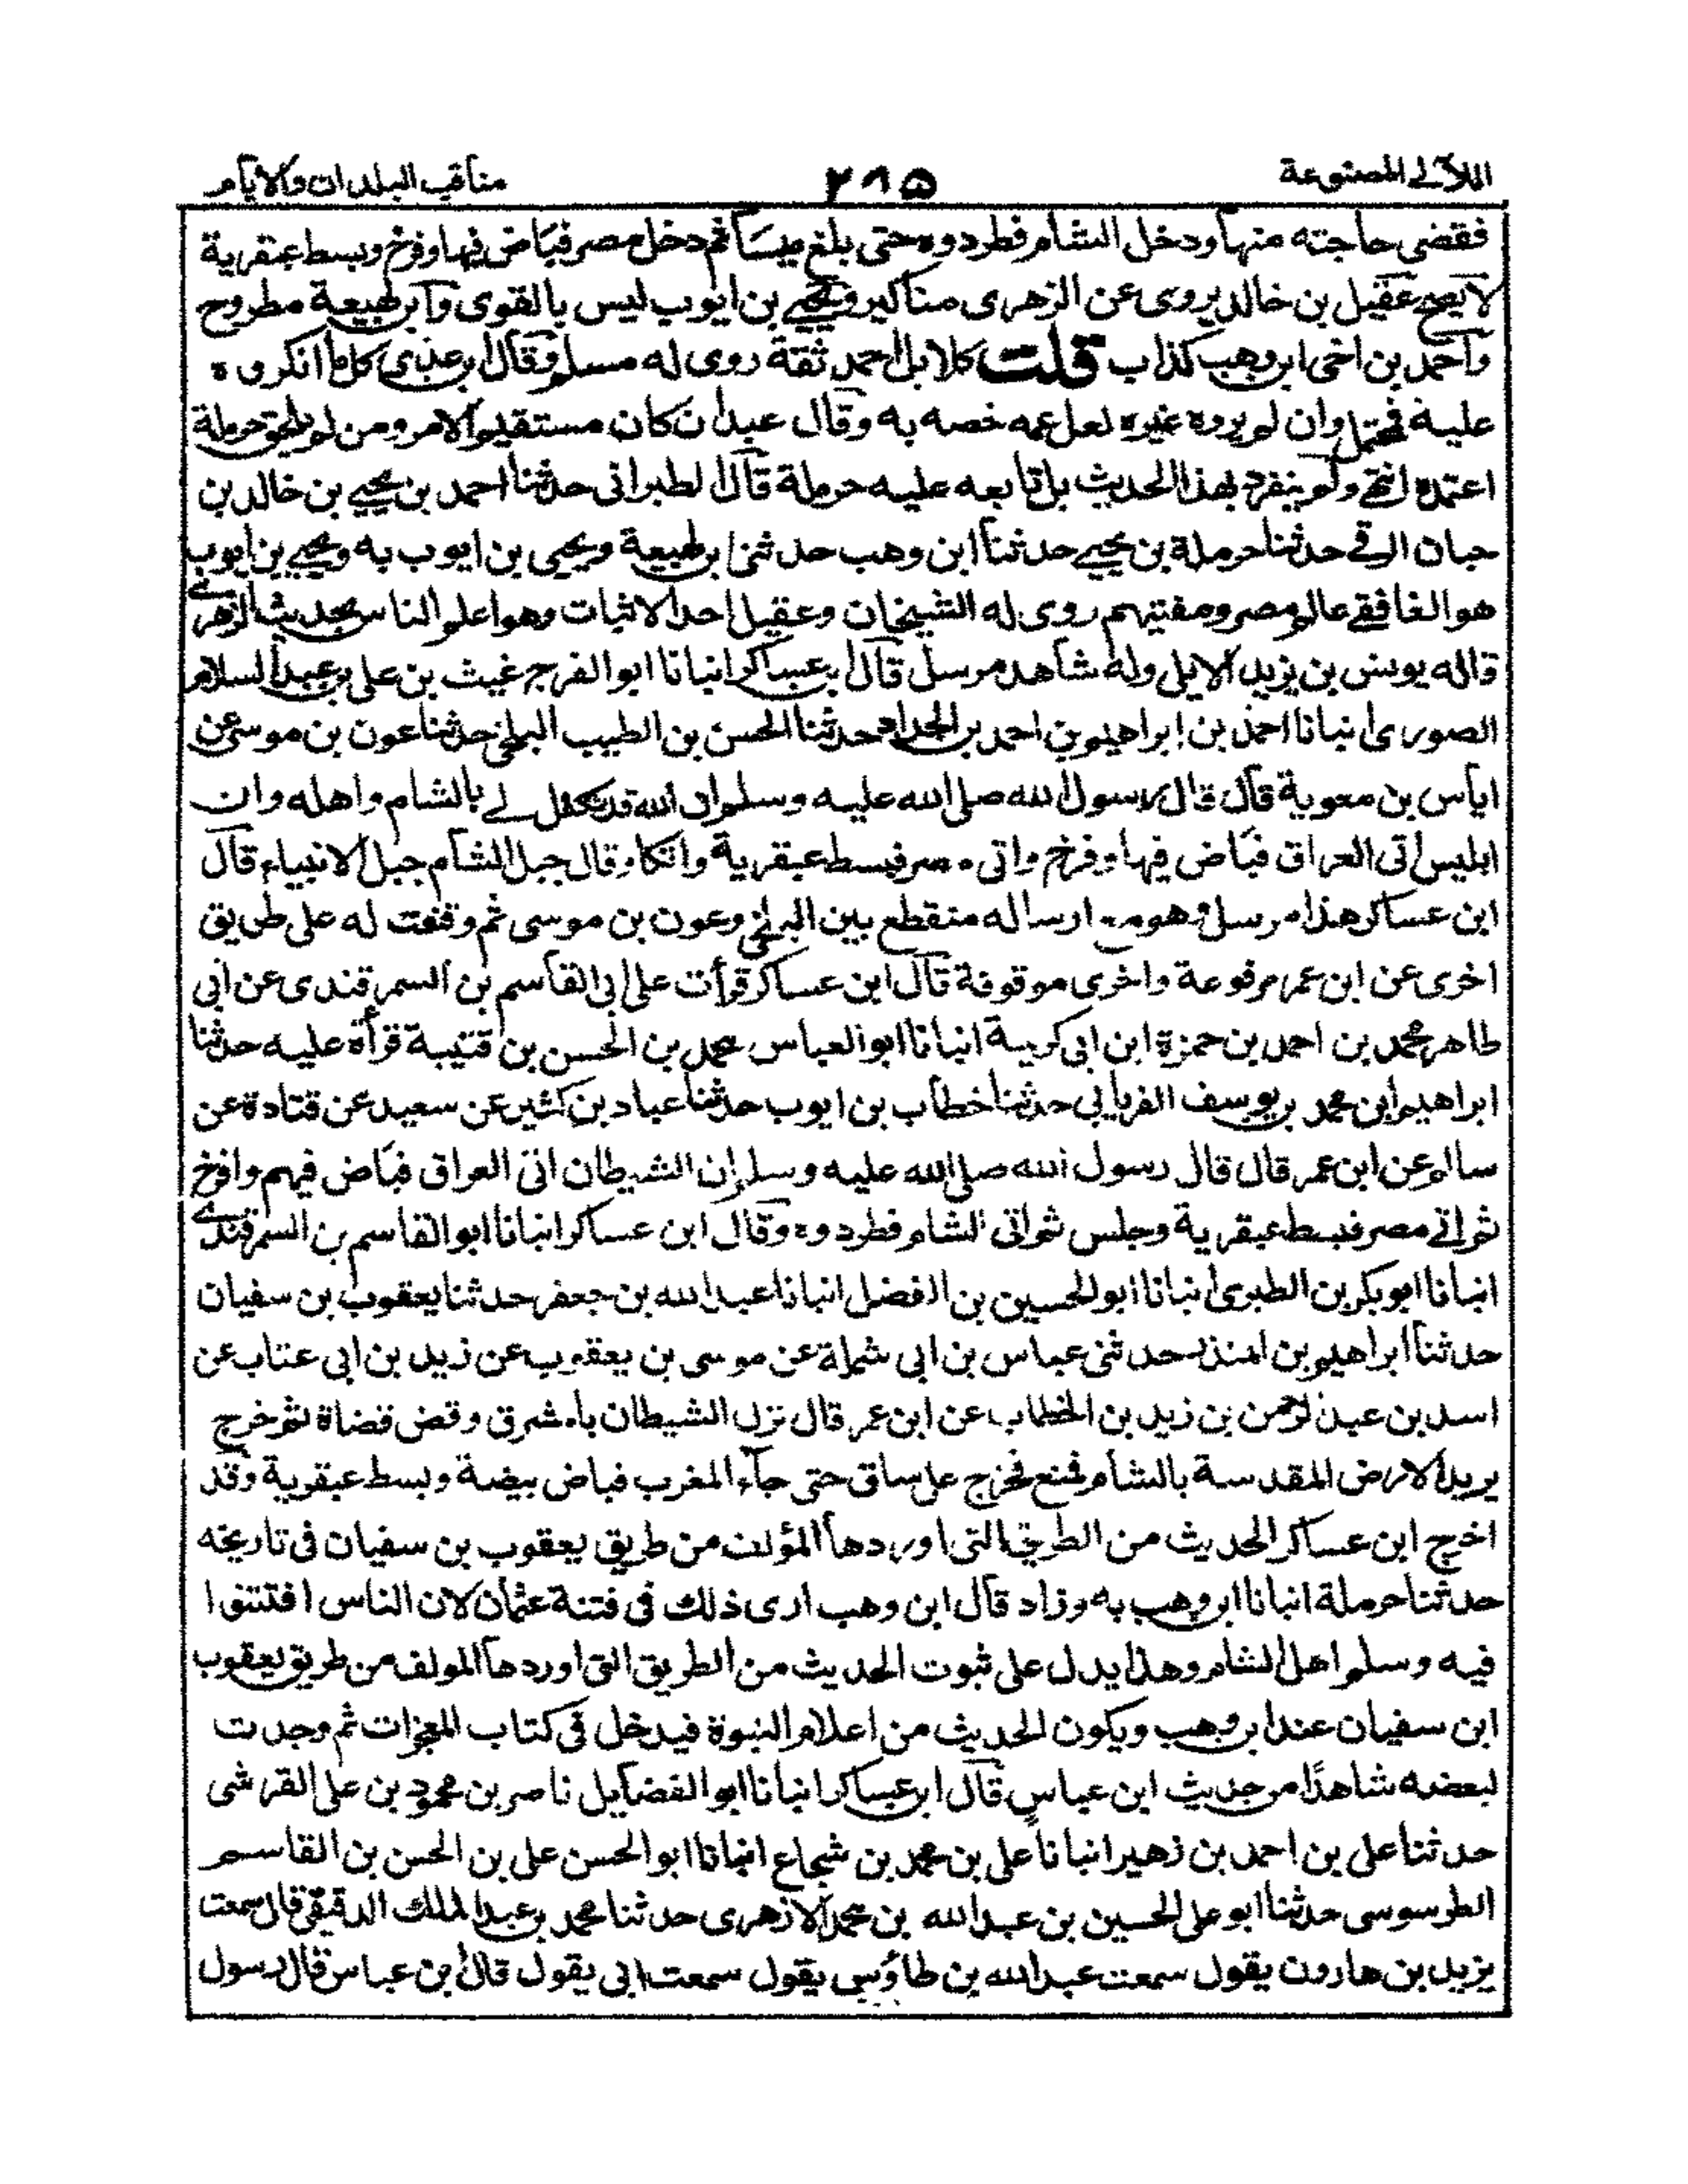 اللآلى المصنوعة
٢٨٥
مناقب البلدان والايام
فقضى حاجته منها ودخل الشام فطردوه حتى بلغ ميسا ثم دخل مصر فباض فيها وفرخ وبسط عبقرية
لا يصح عقيل بن خالد يروى عن الزهرى مناكير ويحيے بن ايوب ليس بالقوى وابن لهيعة مطروح
واحمد بن اخى ابن وهب كذاب قلت كلا بل احمد ثقة روى له مسلم وقال ابن عدى كل ما انكروه
عليه فمحتمل وان لم يروه غيره لعل عمه خصه به وقال عبدان كان مستقيم الامر ومن لم يلحق حرملة
اعتمده انتهى ولم ينفرد بهذا الحديث بل تابعه عليه حرملة قال الطبرانى حدثنا احمد بن يحيے بن خالد بن
حبان الرقے حدثنا حرملة بن يحيے حدثنا ابن وهب حدثنى ابن لهيعة ويحيى بن ايوب به ويحيے بن ايوب
هو الغافقے عالم مصر ومفتيهم روى له الشيخان وعقيل احد الاثبات وهو اعلم الناس بحديث الزهرے
قاله يونس بن يزيد الايلى وله شاهد مرسل قال ابن عساكر انبانا ابو الفرج غيث بن على بن عبد السلام
الصورى انبانا احمد بن ابراهيم بن احمد بن الحداد حدثنا الحسن بن الطيب البلخى حدثنا عون بن موسى عن
اياس بن معوية قال قال رسول الله صلى الله عليه وسلم ان الله قد تكفل لے بالشام واهله وان
ابليس اتى العراق فباض فيها وفرخ واتى مصر فبسط عبقرية واتكاء وقال جبل الشام جبل الانبياء قال
ابن عساكر هذا مرسل وهو مع ارساله منقطع بين البلخى وعون بن موسى ثم وقفت له على طريق
اخرى عن ابن عمر مرفوعة واخرى موقوفة قال ابن عساكر قرأت على ابى القاسم بن السمرقندى عن ابى
طاهر محمد بن احمد بن حمزة ابن ابى كريبة انبانا ابو العباس محمد بن الحسن بن قتيبة قرأة عليه حدثنا
ابراهيم ابن محمد بن يوسف الفريابى حدثنا خطاب بن ايوب حدثنا عباد بن كثير عن سعيد عن قتادة عن
سالم عن ابن عمر قال قال رسول الله صلى الله عليه وسلم ان الشيطان اتى العراق فباض فيهم وافرخ
ثم اتے مصر فبسط عبقرية وجلس ثم اتى الشام فطردوه وقال ابن عساكر انبانا ابو القاسم بن السمرقندے
انبانا ابو بكر بن الطبرى انبانا ابو الحسين بن الفضل انبانا عبد الله بن جعفر حدثنا يعقوب بن سفيان
حدثنا ابراهيم بن المنذر حدثنى عباس بن ابى شملة عن موسى بن يعقوب عن زيد بن ابى عتاب عن
اسد بن عبد الرحمن بن زيد بن الخطاب عن ابن عمر قال نزل الشيطان بالمشرق وقض قضاة ثم خرج
يريد الارض المقدسة بالشام فمنع فخرج على ساق حتى جاء المغرب فباض بيضة وبسط عبقرية وقد
اخرج ابن عساكر الحديث من الطريق التى اوردها المؤلف من طريق يعقوب بن سفيان فى تاريخه
حدثنا حرملة انبانا ابن وهب به وزاد قال ابن وهب ارى ذلك فى فتنة عثمان لان الناس افتتنوا
فيه وسلم اهل الشام وهذا يدل على ثبوت الحديث من الطريق التى اوردها المولف من طريق يعقوب
ابن سفيان عند ابن وهب ويكون الحديث من اعلام النبوة فيدخل فى كتاب المعجزات ثم وجدت
لبعضه شاهدًا من حديث ابن عباس قال ابن عساكر انبانا ابو الفضايل ناصر بن محمود بن على القرشى
حدثنا على بن احمد بن زهير انبانا على بن محمد بن شجاع انبانا ابو الحسن على بن الحسن بن القاسم
الطرسوسى حدثنا ابو على الحسين بن عبد الله بن محمد الازهرى حدثنا محمد بن عبد الملك الدقيقى قال سمعت
يزيد بن هارون يقول سمعت عبد الله بن طاؤس يقول سمعت ابى يقول قال ابن عباس قال رسول